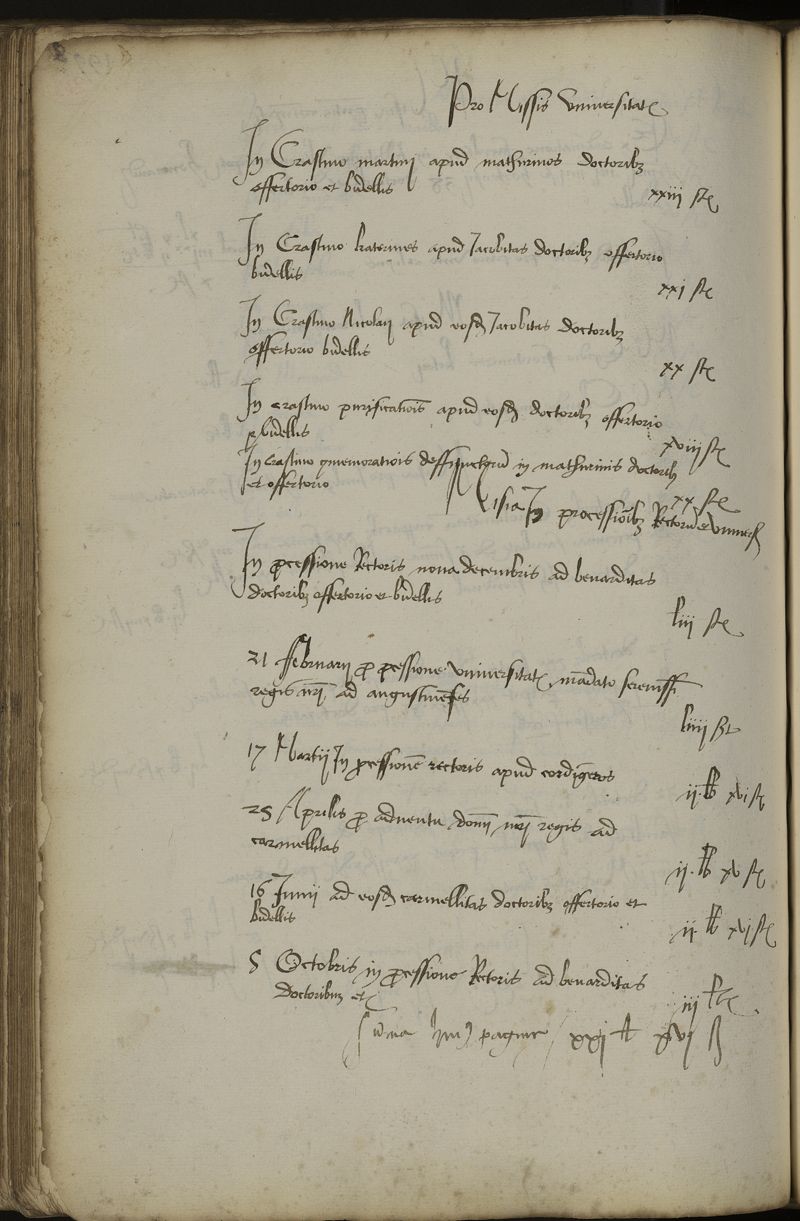 Pro Missis Universitatꝭ
In Crastino martinj apud mathurinos doctoribꝫ
offertorio et bidellis
xxiij st
In Crastino katerines apud Jacobitas doctoribꝫ offertorio
bidellis
xxj st
In Crastino Nicolaij apud eosdꝫ Jacobitas doctoribꝫ
offertorio bidellis
xx st
In crastino purificatiōis apud eosdꝫ doctoribꝫ offertorio
bidellis
xviij st
In crastino ꝯmemoratiōis deffunctorū in mathurinis doctoribꝫ
et offertorio
xx st
In processiōibꝫ Rectorū et Univers
In ꝓcessione Rectoris nona decembris ad benarditas
doctoribꝫ offertorio et bidellis
liij st
21 februarij ꝓ ꝓcessione universitatꝭ mādato sereniss
regis nrī ad augustinēses
liiij st
17 Martii In ꝓcessionē rectoris apud cordigeros
ij lb xvj st
25 Aprilis ꝓ adventu domī nrī regis ad
carmellitas
ij lb xv st
16 Junij ad eosdꝫ carmellitas doctoribꝫ offertorio et
bidellis
ij lb xvj st
5 Octobris in ꝓcessione Rectoris ad benarditas
Doctoribus etꝭ
iij lb
sūma pagine xxj lb xvj ß